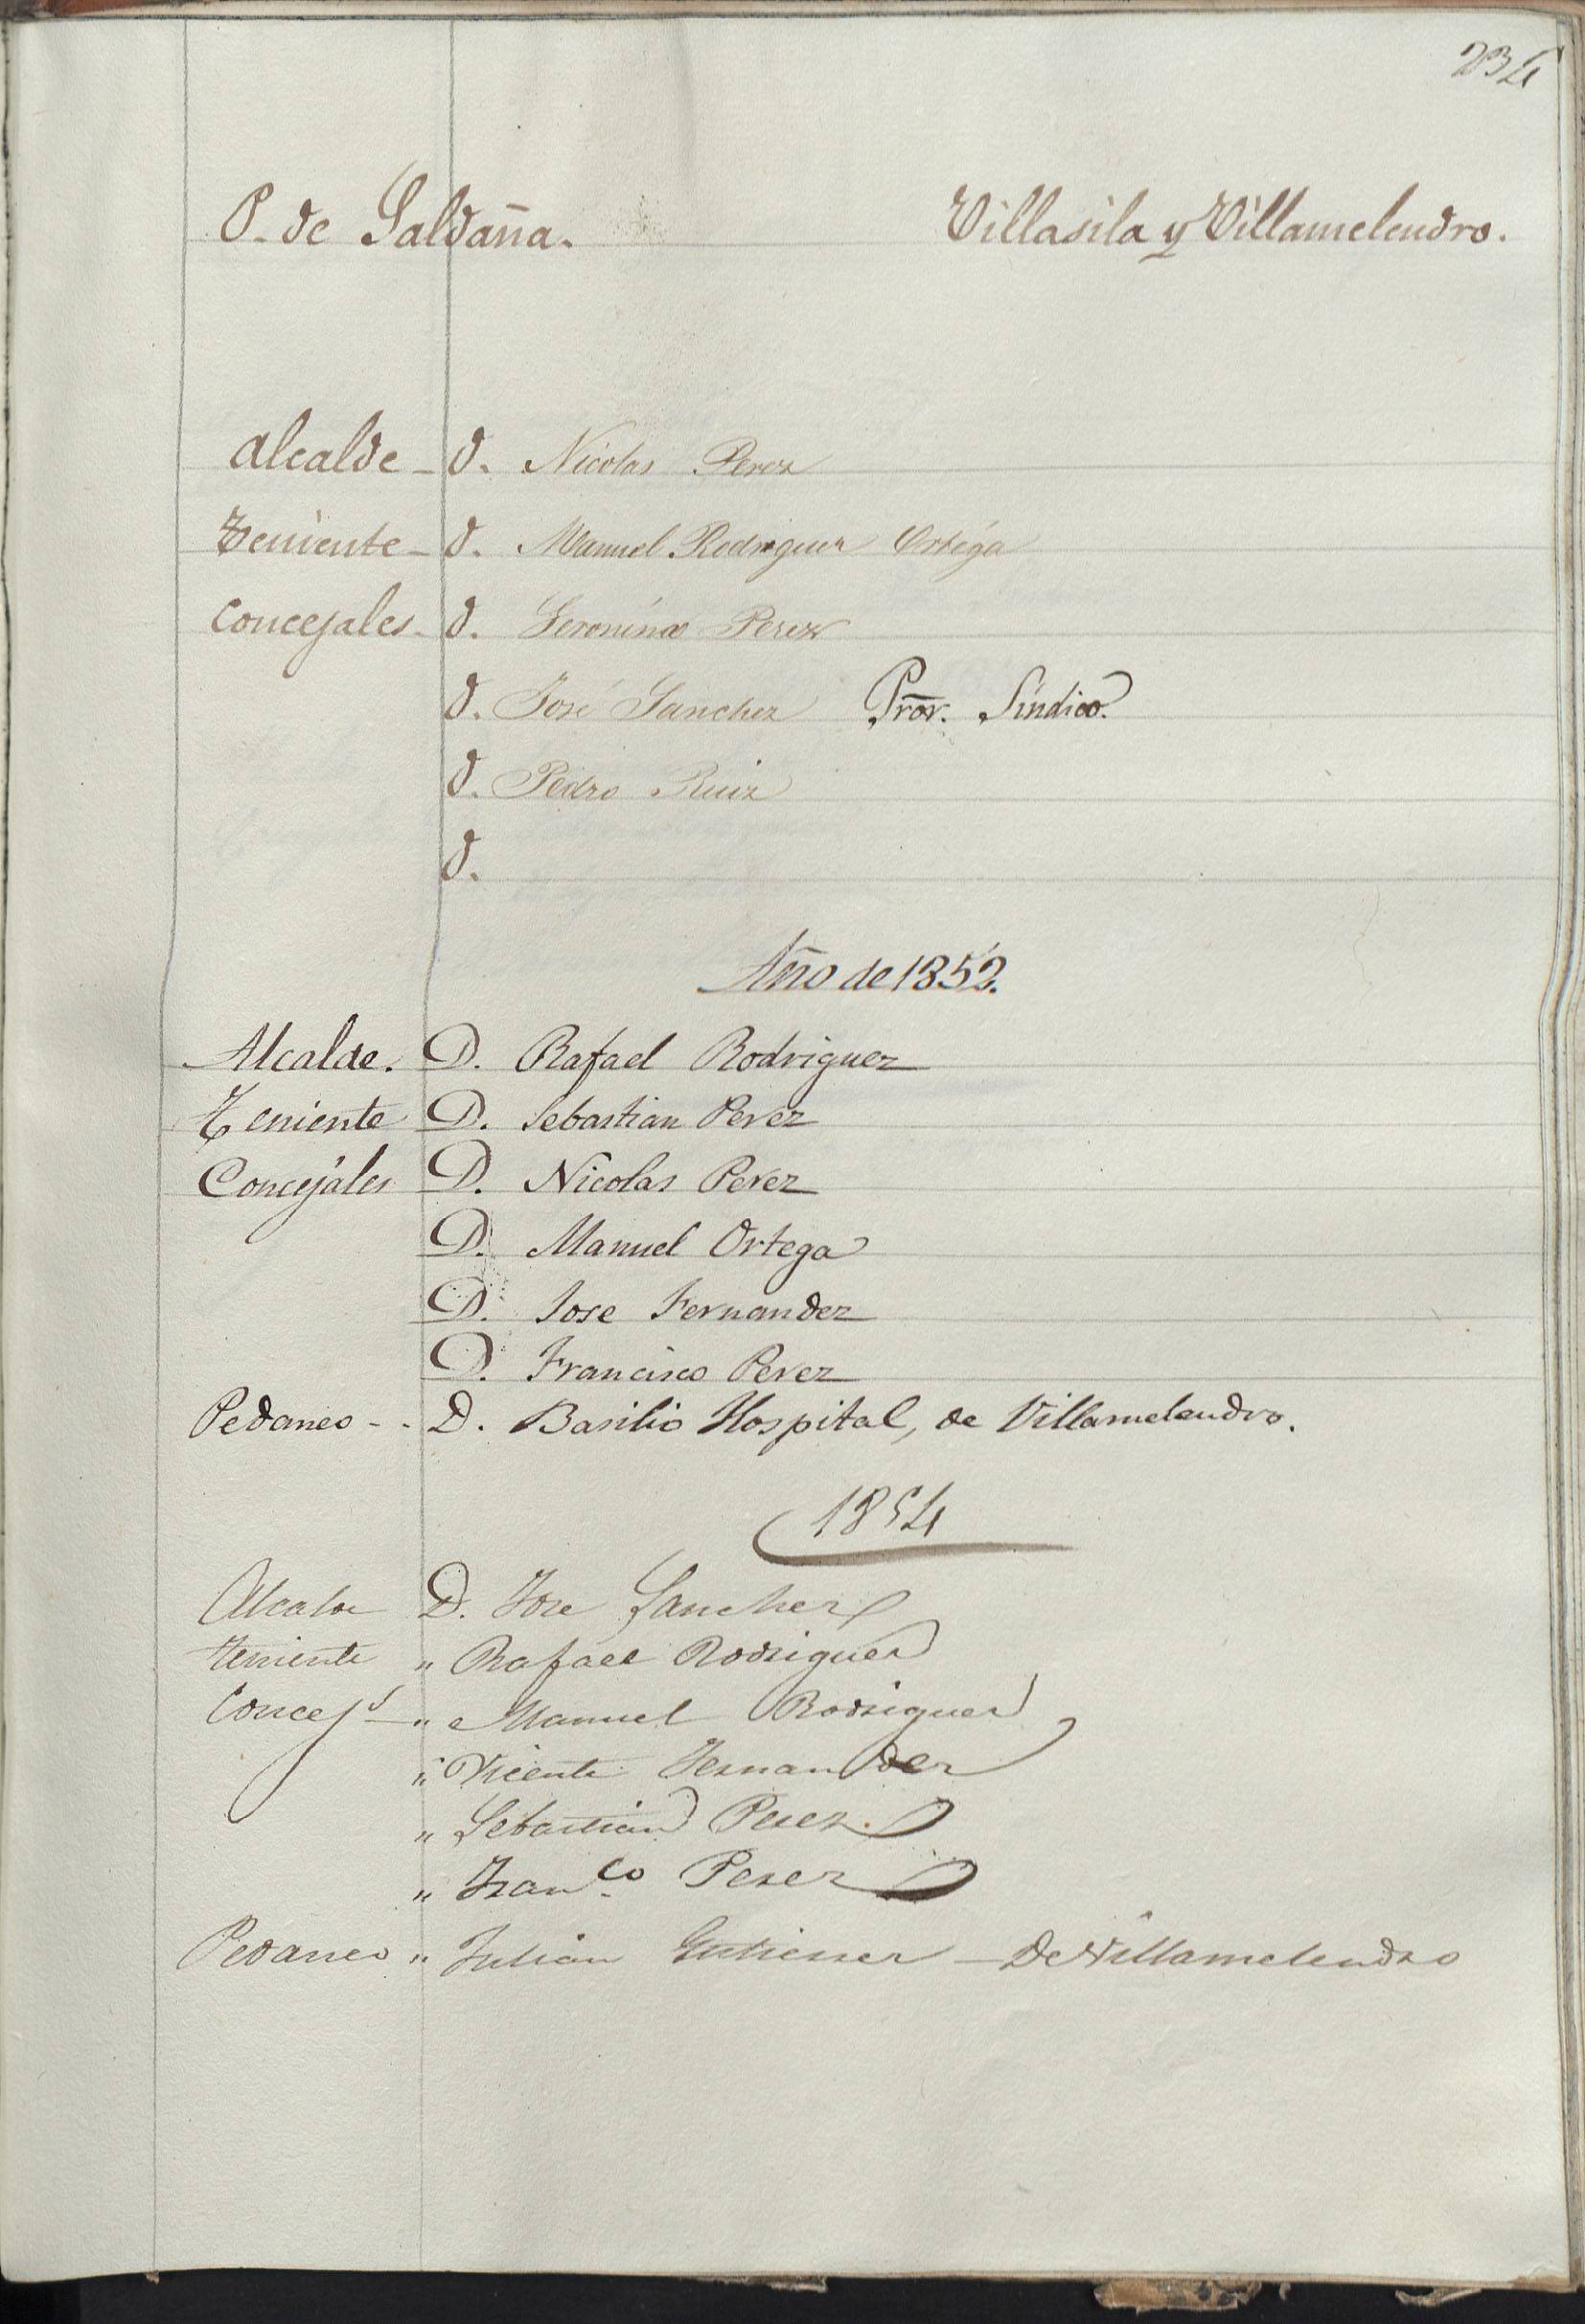 234
P. de Saldaña. Villasila y Villamelendro.
Alcalde - D. Nicolas Perez
Teniente - D. Manuel Rodriguez Ortega
Concejales - D. Geronimo Perez
D. José Sanchez Pror. Síndico.
D. Pedro Ruiz
D.
Año de 1852.
Alcalde. D. Rafael Rodriguez
Teniente D. Sebastian Perez
Concejales D. Nicolas Perez
D. Manuel Ortega
D. Jose Fernandez
D. Francisco Perez
Pedaneo - - D. Basilio Hospital, de Villamelendro.
1854
Alcalde D. Jose Sanchez
Teniente " Rafael Rodriguez
Concejs - " Manuel Rodriguez
" Vicente Fernandez
" Sebastian Perez
" Franco Perez
Pedaneo " Julian Gutierrez - De Villamelendro